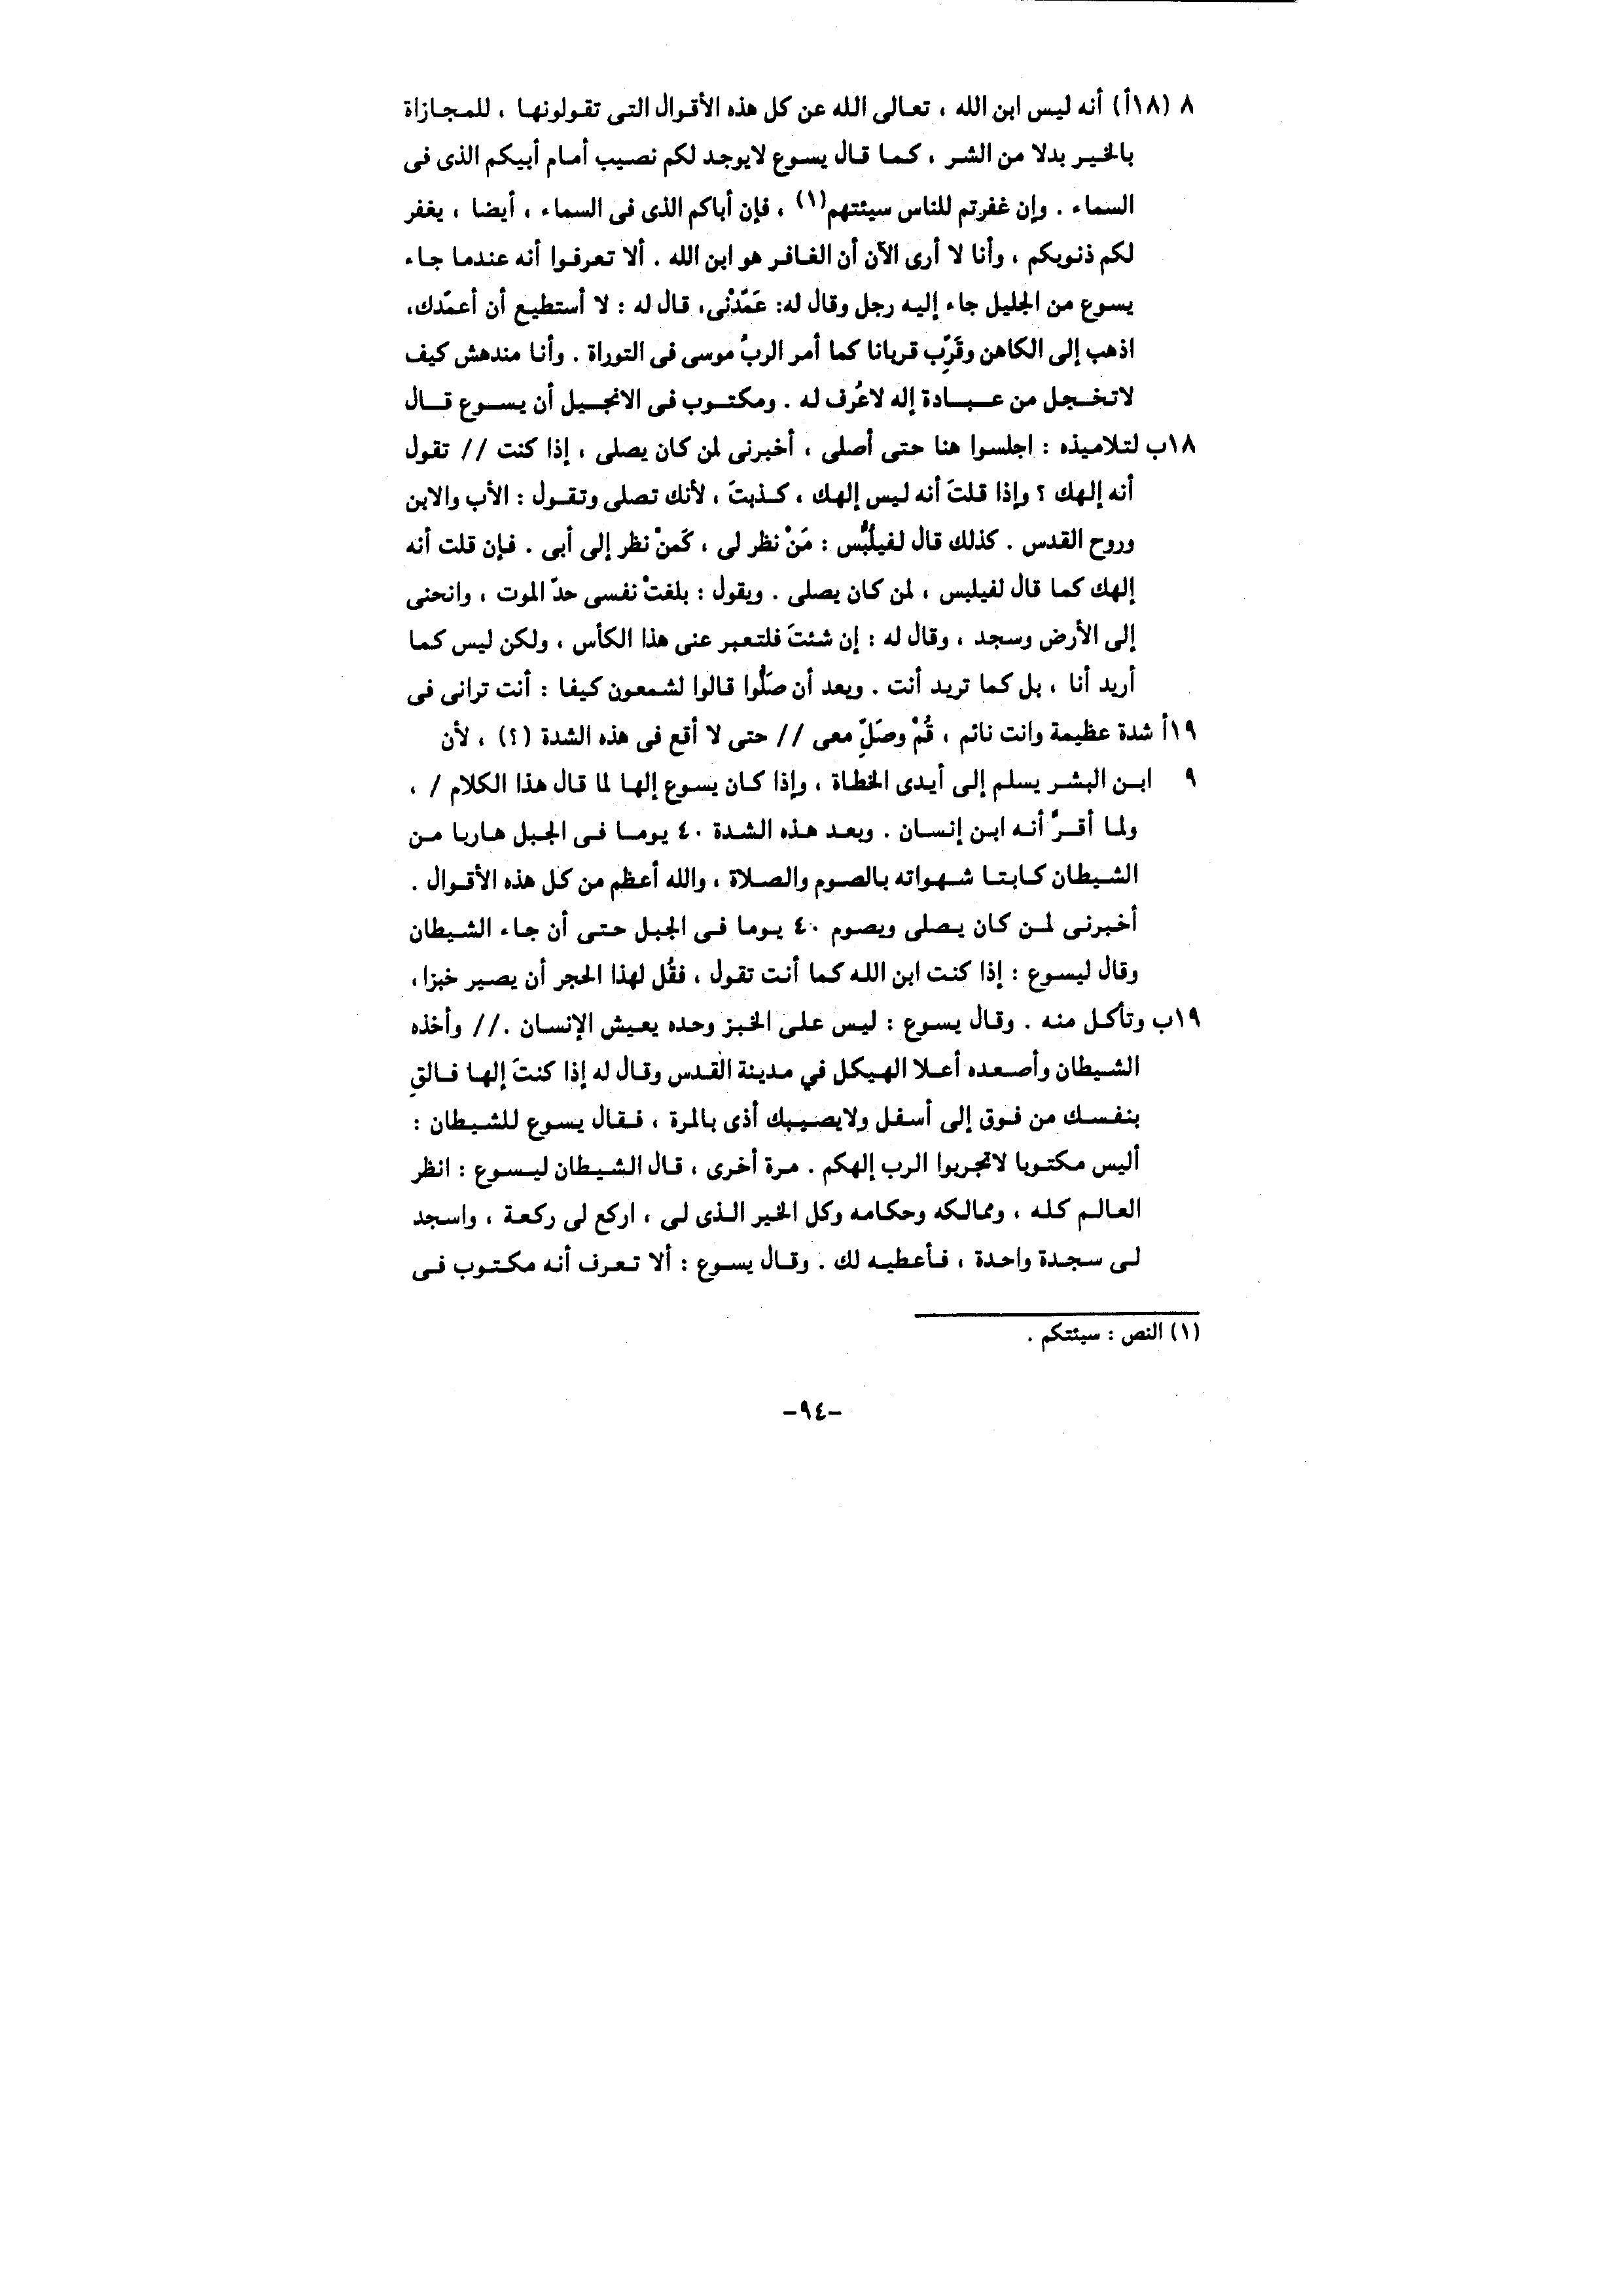 ٨ (١٨أ) أنه ليس ابن الله ، تعالى الله عن كل هذه الأقوال التى تقولونها ، للمجازاة
بالخير بدلا من الشر ، كما قال يسوع لايوجد لكم نصيب أمام أبيكم الذى فى
السماء . وإن غفرتم للناس سيئتهم(١) ، فإن أباكم الذى فى السماء ، أيضا ، يغفر
لكم ذنوبكم ، وأنا لا أرى الآن أن الغافر هو ابن الله . ألا تعرفوا أنه عندما جاء
يسوع من الجليل جاء إليه رجل وقال له: عَمّدْنى، قال له : لا أستطيع أن أعمّدك،
اذهب إلى الكاهن وقَرِّب قربانا كما أمر الربُ موسى فى التوراة . وأنا مندهش كيف
لاتخجل من عبادة إله لاعُرف له . ومكتوب فى الانجيل أن يسوع قال
١٨ب لتلاميذه : اجلسوا هنا حتى أصلى ، أخبرنى لمن كان يصلى ، إذا كنت // تقول
أنه إلهك ؟ وإذا قلتَ أنه ليس إلهك ، كذبتَ ، لأنك تصلى وتقول : الأب والابن
وروح القدس . كذلك قال لفيلبُّس : مَنْ نظر لى ، كَمنْ نظر إلى أبى . فإن قلت أنه
إلهك كما قال لفيلبس ، لمن كان يصلى . ويقول : بلغتْ نفسى حدّ الموت ، وانحنى
إلى الأرض وسجد ، وقال له : إن شئتَ فلتعبر عنى هذا الكأس ، ولكن ليس كما
أريد أنا ، بل كما تريد أنت . وبعد أن صَلُّوا قالوا لشمعون كيفا : أنت ترانى فى
١٩أ شدة عظيمة وانت نائم ، قُمْ وصَلِّ معى // حتى لا أقع فى هذه الشدة (؟) ، لأن
٩ ابن البشر يسلم إلى أيدى الخطاة ، وإذا كان يسوع إلها لما قال هذا الكلام / ،
ولما أقرَّ أنه ابن إنسان . وبعد هذه الشدة ٤٠ يوما فى الجبل هاربا من
الشيطان كابتا شهواته بالصوم والصلاة ، والله أعظم من كل هذه الأقوال .
أخبرنى لمن كان يصلى ويصوم ٤٠ يوما فى الجبل حتى أن جاء الشيطان
وقال ليسوع : إذا كنت ابن الله كما أنت تقول ، فقُل لهذا الحجر أن يصير خبزا،
١٩ب وتأكل منه . وقال يسوع : ليس على الخبز وحده يعيش الإنسان .// وأخذه
الشيطان وأصعده أعلا الهيكل في مدينة القدس وقال له إذا كنتَ إلها فالقِ
بنفسك من فوق إلى أسفل ولايصيبك أذى بالمرة ، فقال يسوع للشيطان :
أليس مكتوبا لاتجربوا الرب إلهكم . مرة أخرى ، قال الشيطان ليسوع : انظر
العالم كله ، وممالكه وحكامه وكل الخير الذى لى ، اركع لى ركعة ، واسجد
لى سجدة واحدة ، فأعطيه لك . وقال يسوع : ألا تعرف أنه مكتوب فى
(١) النص : سيئتكم .
-٩٤-